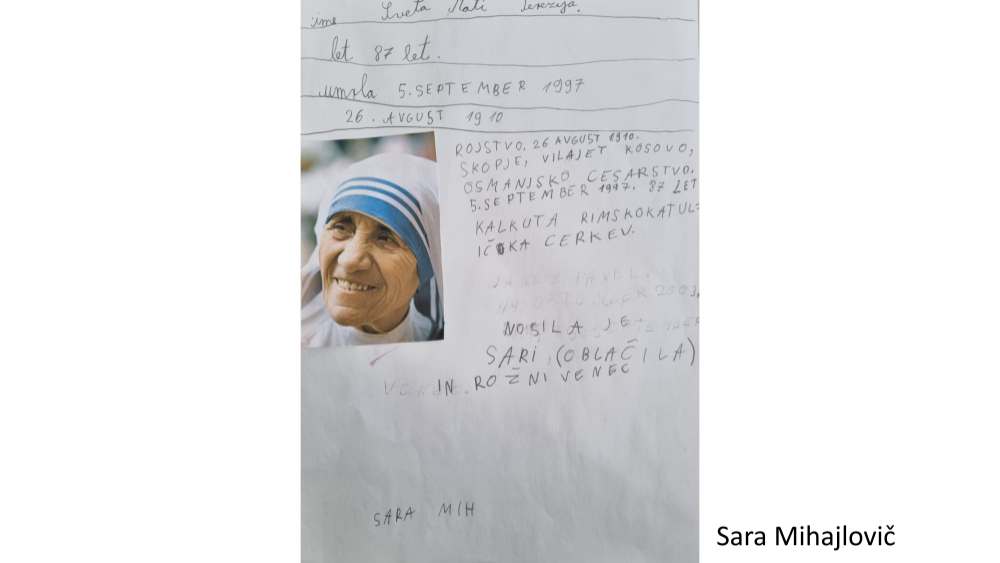 ime Sveta Mati Terezija.
let 87 let.
umrla 5. SEPTEMBER 1997
26. AVGUST 1910
ROJSTVO. 26 AVGUST 1910.
SKOPJE, VILAJET KOSOVO,
OSMANJSKO CESARSTVO.
5. SEPTEMBER 1997. 87 LET
KALKUTA RIMSKOKATUL=
IČKA CERKEV.
NOSILA JE
SARI (OBLAČILA)
IN ROŽNI VENEC
SARA MIH
Sara Mihajlovič